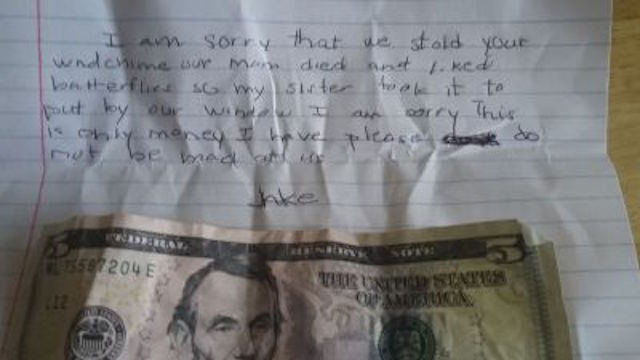 I am sorry that we stold your
windchime our mom died and liked
butterflies so my sister took it to
put by our window I am sorry This
is only money I have please do
not be mad at us
Jake
5 FEDERAL RESERVE NOTE 5
THE UNITED STATES
OF AMERICA
L12